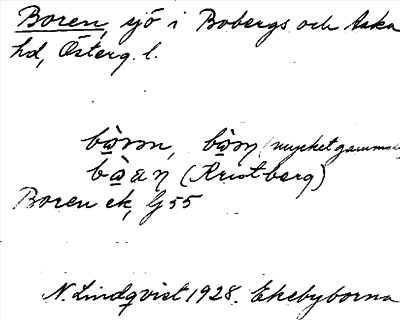 Boren, sjö i Bobergs och Aska
hd, Österg. l.
(mycket gammal
(Kristberg)
Boren ek, G 55
N. Lindqvist 1928. Ekebyborna